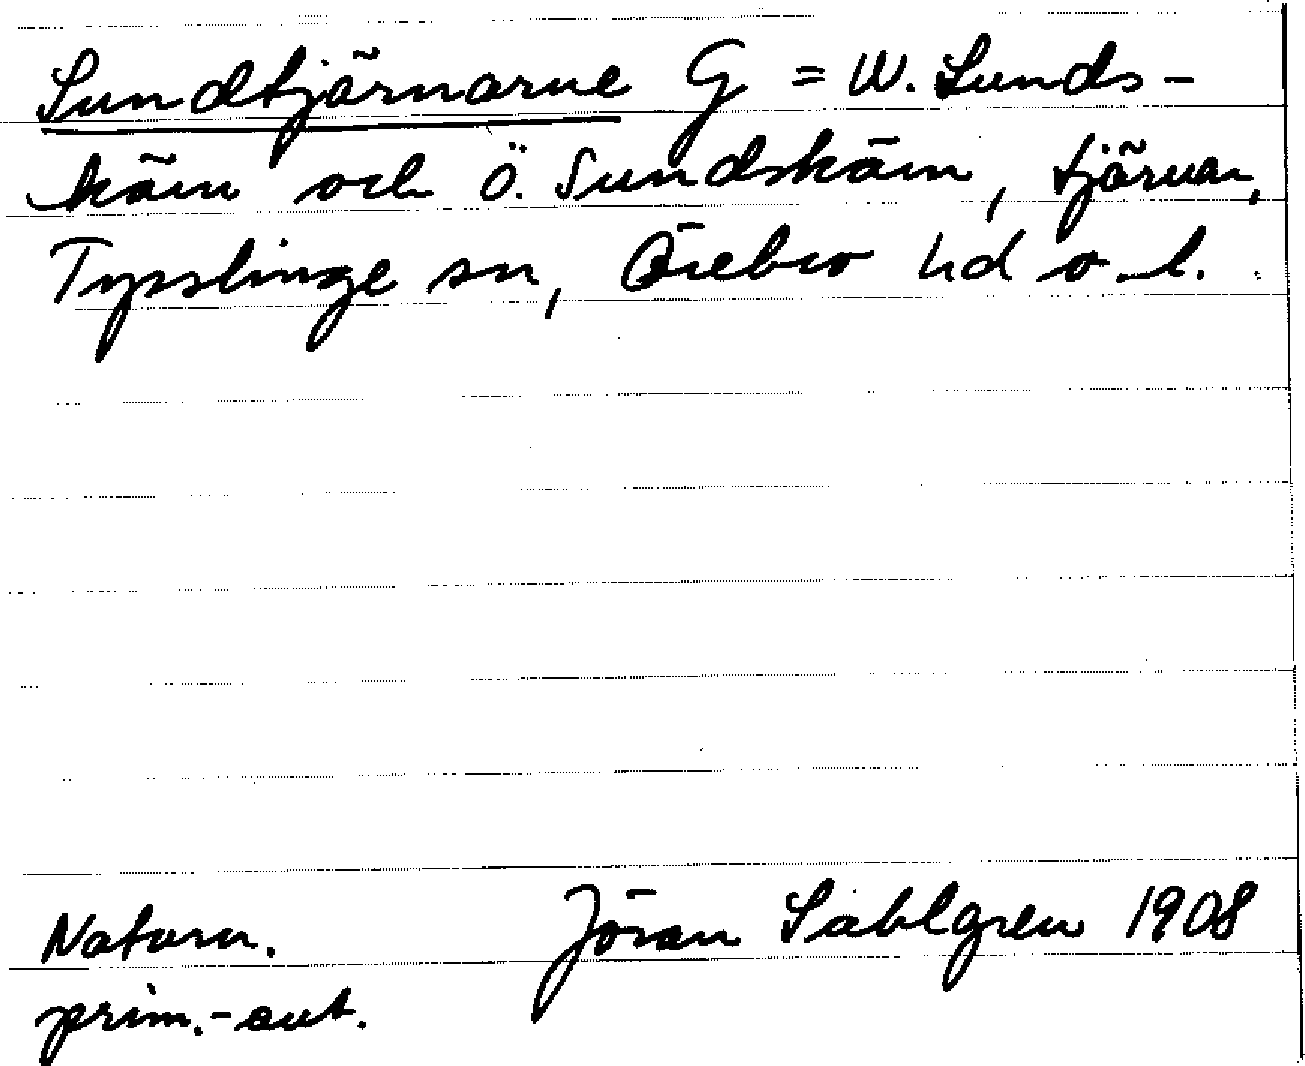 Sundtjärnarne G = W. Sunds-
käin och Ö. Sundskäin, tjärnar,
Tysslinge sn, Örebro hd o. l.
Naturn. Jöran Sahlgren 1908
prim.-ant.